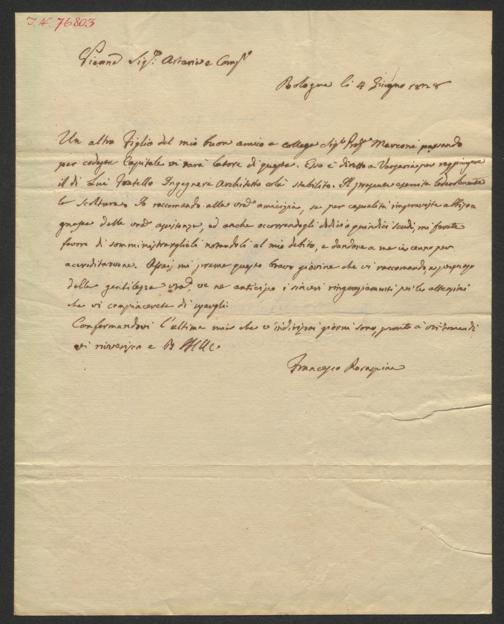 I.N. 76803
Vienna Sig.ri Artaria e Comp.i
Bologna li 4 Giugno 1828
Un altro Figlio del mio buon amico e collega Sig.r Prof.r Marconi passando
per codesta Capitale vi sarà latore di questa. Esso è diretto a Varsavia per raggiugnere
il di Lui Fratello Ingegnere Architetto colà stabilito. Il presente esercita
la Scultura. Io raccomando alla vostra amicizia, se per casualità imprevista abbiso
gnasse della vostra assistenza, ed anche occorrendogli dodici o quindici scudi, mi farete
favore di somministrarglieli notandoli al mio debito, e dandone a me un cenno per
accreditarvene. Assai mi preme questo bravo giovine che vi raccomando, e
della gentilezza vostra, ve ne anticipo i sinceri ringraziamenti per le attenzioni
che vi compiacerete di usargli.
Confermandovi l'ultima mia che v'indirizzai giorni sono, pronto a vostri comandi
vi riverisco e
Francesco Rosaspina